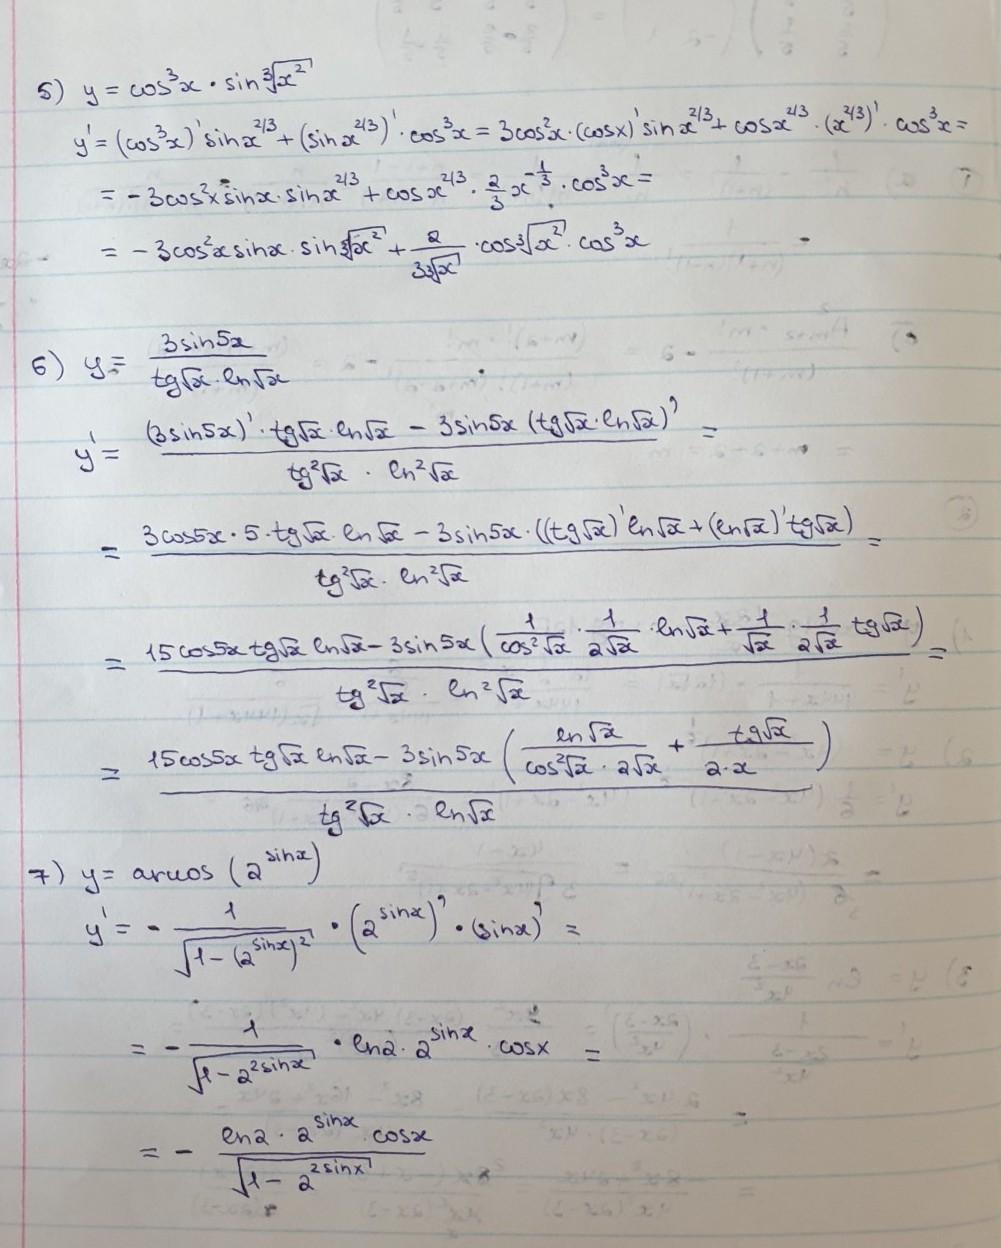 5) y = cos³x · sin∛x²
y' = (cos³x)' sinx^2/3 + (sinx^2/3)' · cos³x = 3cos²x · (cosx)' sinx^2/3 + cosx^2/3 · (x^2/3)' · cos³x =
= -3cos²x sinx · sinx^2/3 + cosx^2/3 · 2/3 x^-1/3 · cos³x =
= -3cos²x sinx · sin∛x² + 2/(3∛x) · cos∛x² · cos³x
6) y = (3sin5x)/(tg√x · ln√x)
y' = ((3sin5x)' · tg√x · ln√x - 3sin5x (tg√x · ln√x)')/(tg²√x · ln²√x) =
= (3cos5x · 5 · tg√x · ln√x - 3sin5x · ((tg√x)' ln√x + (ln√x)' tg√x))/(tg²√x · ln²√x) =
= (15cos5x tg√x ln√x - 3sin5x (1/(cos²√x) · 1/(2√x) · ln√x + 1/√x · 1/(2√x) tg√x))/(tg²√x · ln²√x) =
= (15cos5x tg√x ln√x - 3sin5x (ln√x/(cos²√x · 2√x) + tg√x/(2·x)))/(tg²√x · ln√x)
7) y = arccos (2^sinx)
y' = - 1/√(1-(2^sinx)²) · (2^sinx)' · (sinx)' =
= - 1/√(1-2^2sinx) · ln2 · 2^sinx · cosx =
= - (ln2 · 2^sinx · cosx)/√(1-2^2sinx)